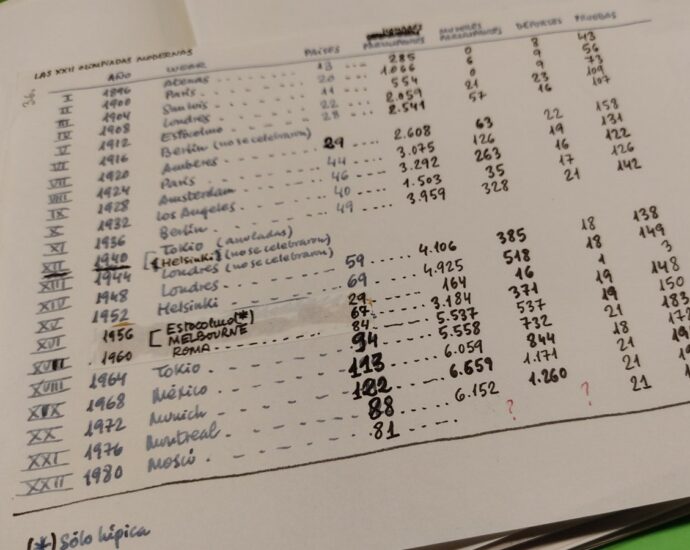 36.
LAS XXII OLIMPIADAS MODERNAS
AÑO LUGAR PAÍSES PARTICIPANTES MUJERES PARTICIPANTES DEPORTES PRUEBAS
I 1896 Atenas 13 285 0 8 43
II 1900 París 20 1.066 6 9 56
III 1904 San Luis 11 554 0 9 73
IV 1908 Londres 22 2.059 21 23 109
V 1912 Estocolmo 28 2.541 57 16 107
1916 Berlín (no se celebraron)
VII 1920 Amberes 29 2.608 63 22 158
VIII 1924 París 44 3.075 126 19 131
IX 1928 Amsterdam 46 3.292 263 16 122
X 1932 Los Angeles 40 1.503 35 17 126
XI 1936 Berlín 49 3.959 328 21 142
XII 1940 [ Tokio (anuladas)
Helsinki (no se celebraron)
XIII 1944 Londres (no se celebraron)
XIV 1948 Londres 59 4.106 385 18 138
XV 1952 Helsinki 69 4.925 518 18 149
XVI 1956 [ ESTOCOLMO (*) 29 164 16 1 3
MELBOURNE 67 3.184 371 19 148
XVII 1960 ROMA 84 5.537 537 19 150
XVIII 1964 Tokio 94 5.558 732 21 183
XIX 1968 México 113 6.059 844 18 172
XX 1972 Munich 122 6.659 1.171 21
XXI 1976 Montreal 88 6.152 1.260 21
XXII 1980 Moscú 81 ? ? 21
(*) Sólo hípica